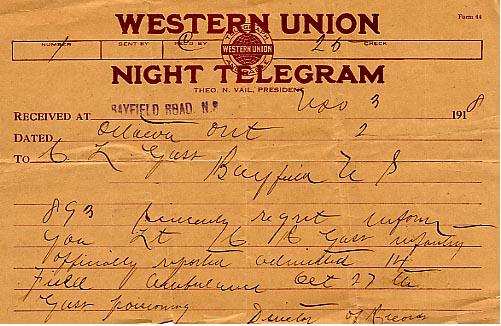 WESTERN UNION
Form 44
1 NUMBER SENT BY REC'D BY 25 CHECK
WESTERN UNION
NIGHT TELEGRAM
THEO. N. VAIL, PRESIDENT
RECEIVED AT BAYFIELD ROAD, N.B. Nov 3 1918
DATED Ottawa Ont 2
TO C L Gass
Bayfield N S
893 Sincerely regret inform
you Lt C C Gass infantry
officially reported admitted 14
Field Ambulance Oct 27th
Gass poisoning Director of Records